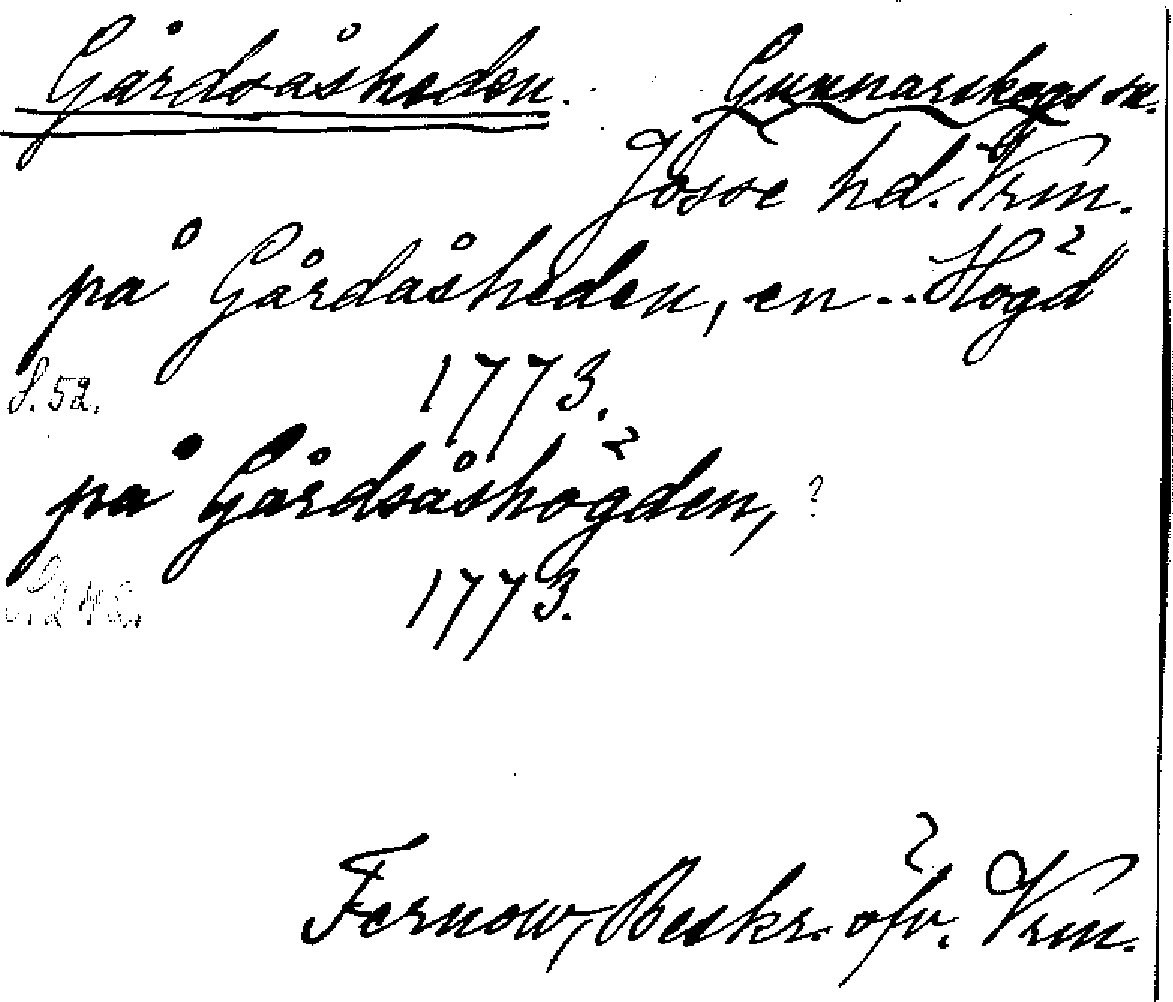 Gårdsåsheden. Gunnarskogs sn.
Jösse hd. Vrm.
på Gårdåsheden, en .. Högd
S. 52. 1773.
på Gårdsåshögden, ?
1773.
Fernow, Beskr. öfv. Vrm.